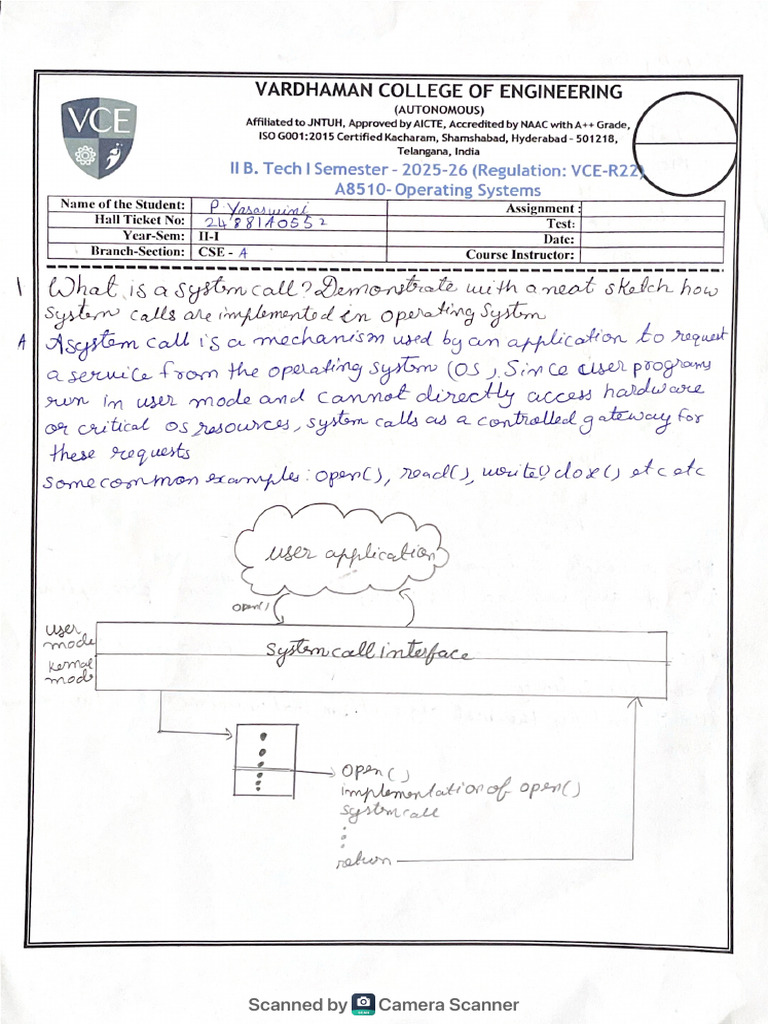 VARDHAMAN COLLEGE OF ENGINEERING
(AUTONOMOUS)
Affiliated to JNTUH, Approved by AICTE, Accredited by NAAC with A++ Grade,
ISO G001:2015 Certified Kacharam, Shamshabad, Hyderabad - 501218,
Telangana, India
VCE
II B. Tech I Semester - 2025-26 (Regulation: VCE-R22)
A8510- Operating Systems
Name of the Student: P Yasaswini Assignment :
Hall Ticket No: 24881A0552 Test:
Year-Sem: II-I Date:
Branch-Section: CSE - A Course Instructor:
1 What is a system call? Demonstrate with a neat sketch how
system calls are implemented in operating System
A A system call is a mechanism used by an application to request
a service from the operating system (OS). Since user programs
run in user mode and cannot directly access hardware
or critical OS resources, system calls as a controlled gateway for
these requests
some common examples: open(), read(), write() close() etc etc
user application
open()
user
mode
system call interface
kernal
mode
open()
implementation of open()
system call
return
Scanned by Camera Scanner